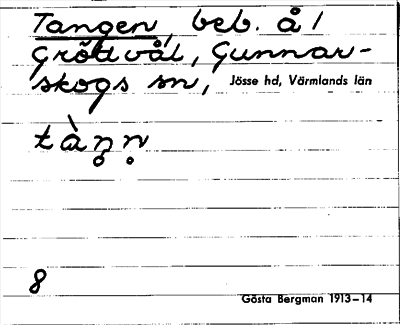 Tangen, beb. å /
Gröttvål, Gunnar-
skogs sn, Jösse hd, Värmlands län
tàn̥n̥
8
Gösta Bergman 1913–14